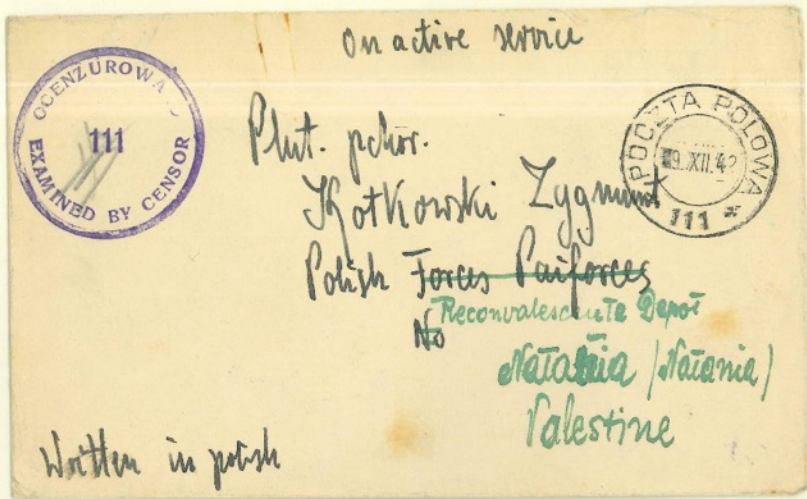 On active service
OCENZUROWANO
111
EXAMINED BY CENSOR
POCZTA POLOWA
19.XII.42
111 *
Plut. pchor.
Kotkowski Zygmunt
Polish Forces Paiforces
No
Reconvalescente Depot
Natania (Natania)
Palestine
Written in polish